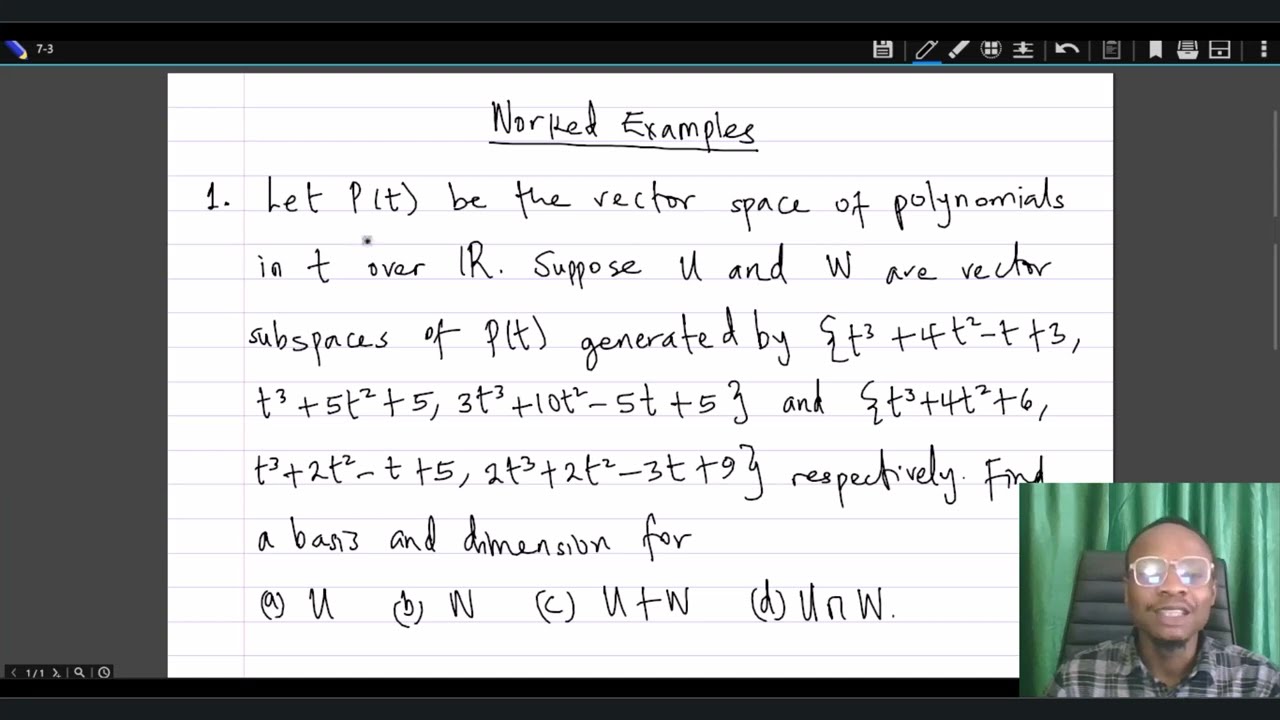 7-3
Worked Examples
1. Let P(t) be the vector space of polynomials
in t over IR. Suppose U and W are vector
subspaces of P(t) generated by {t³ + 4t² - t + 3,
t³ + 5t² + 5, 3t³ + 10t² - 5t + 5} and {t³ + 4t² + 6,
t³ + 2t² - t + 5, 2t³ + 2t² - 3t + 9} respectively. Find
a basis and dimension for
(a) U (b) W (c) U + W (d) U ∩ W.
1/1